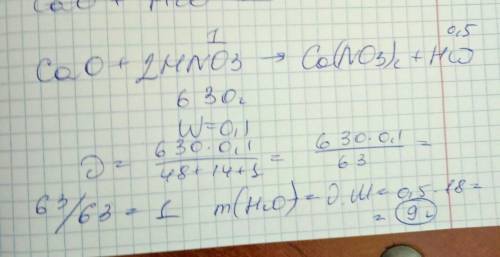 CaO + HCl
1 0,5
CaO + 2HNO3 → Ca(NO3)2 + H2O
630г
W=0,1
Э = 630·0,1 / 48+14+1 = 630·0,1 / 63 =
63/63 = 1 m(H2O) = Э·M = 0,5·18 =
= 9г